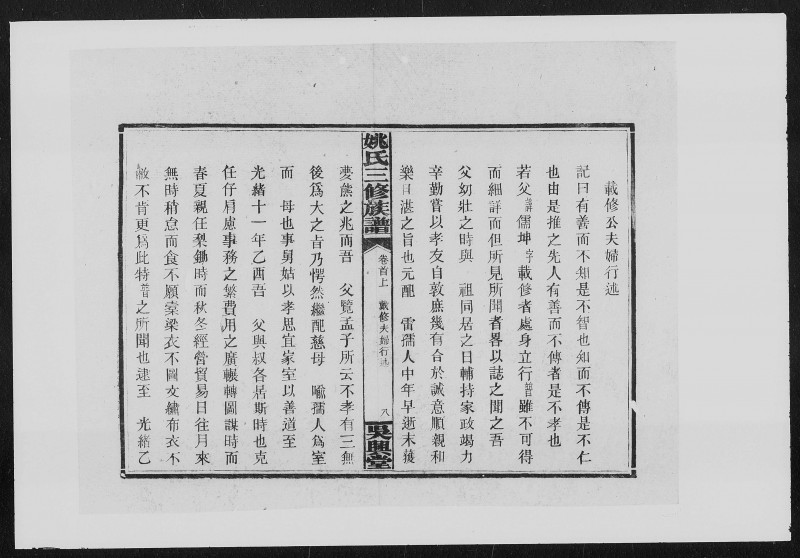 載修公夫婦行述
記曰有善而不知是不智也知而不傳是不仁
也由是推之先人有善而不傳者是不孝也
若父諱儒坤字載修者處身立行曾雖不可得
而細詳而但所見所聞者畧以誌之聞之吾
父幼壯之時與 祖同居之日輔持家政竭力
辛勤嘗以孝友自敦庶幾有合於誠意順親和
樂日湛之旨也元配 雷孺人中年早逝未獲
姚氏三修族譜
卷首上 載修夫婦行述 八
吳興堂
夢熊之兆而吾 父覽孟子所云不孝有三無
後爲大之旨乃愕然繼配慈母 喻孺人爲室
而 母也事舅姑以孝思宜家室以善道至
光緒十一年乙酉吾 父與叔各居斯時也克
任仔肩慮事務之繁費用之廣帳轉圖謀時而
春夏親任犁鋤時而秋冬經營貿易日往月來
無時稍怠而食不願膏粱衣不圖文繡布衣不
敝不肯更爲此特曾之所聞也逮至 光緒乙